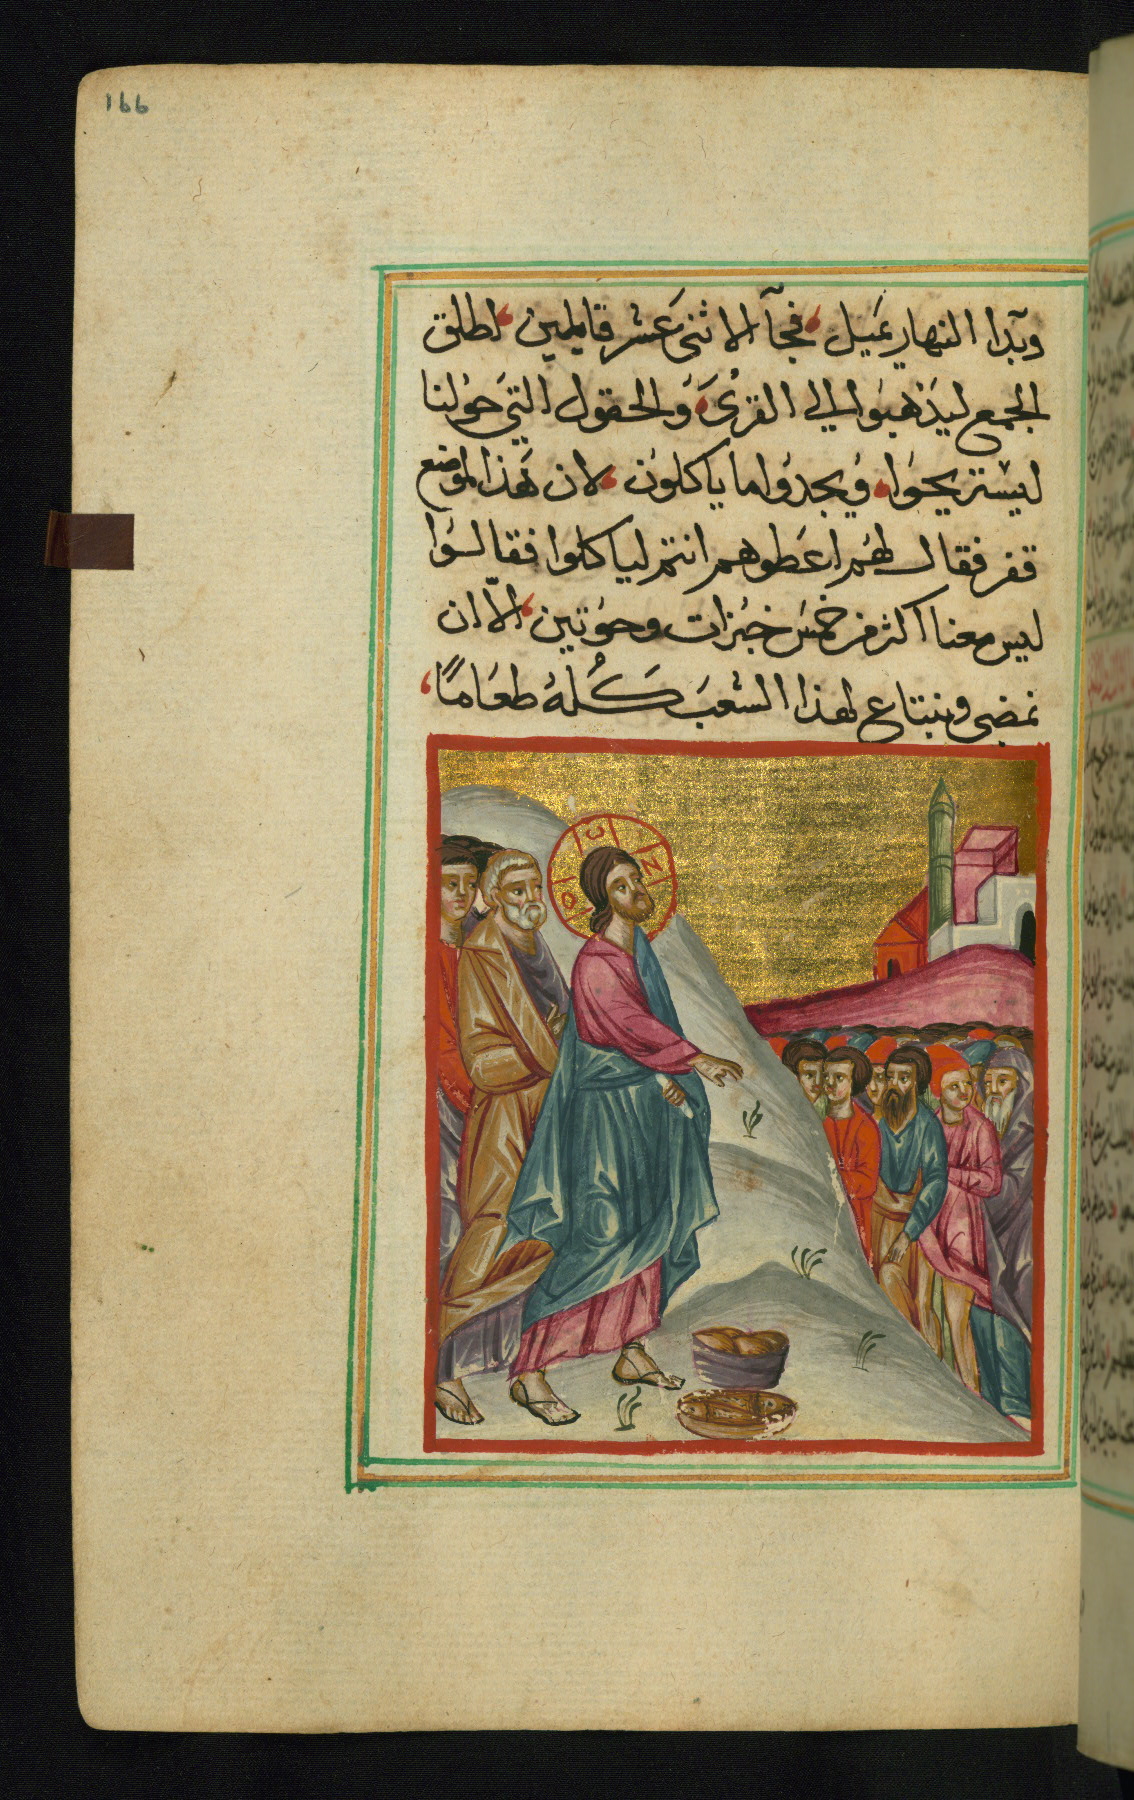 166
وبدا النهار يميل، فجآ الاثنى عشر قايلين، اطلق
الجمع ليذهبوا الي القرى، والحقول التي حولنا
ليستريحوا، ويجدوا ما ياكلون، لان هذا الموضع
قفر فقال لهم اعطوهم انتم لياكلوا فقالوا
ليس معنا اكثر من خمس خبزات وحوتين، الّا ان
نمضي ونبتاع لهذا الشعب كُله طعامًا،
Ο Ѡ Ν